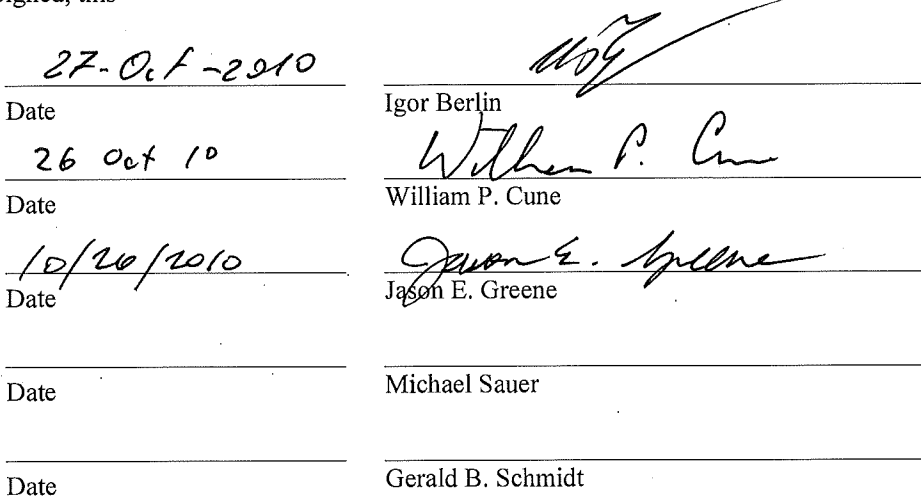 signed, this
27-Oct-2010
Date Igor Berlin
26 Oct 10 William P. Cune
Date William P. Cune
10/26/2010 Jason E. Greene
Date Jason E. Greene
Date Michael Sauer
Date Gerald B. Schmidt